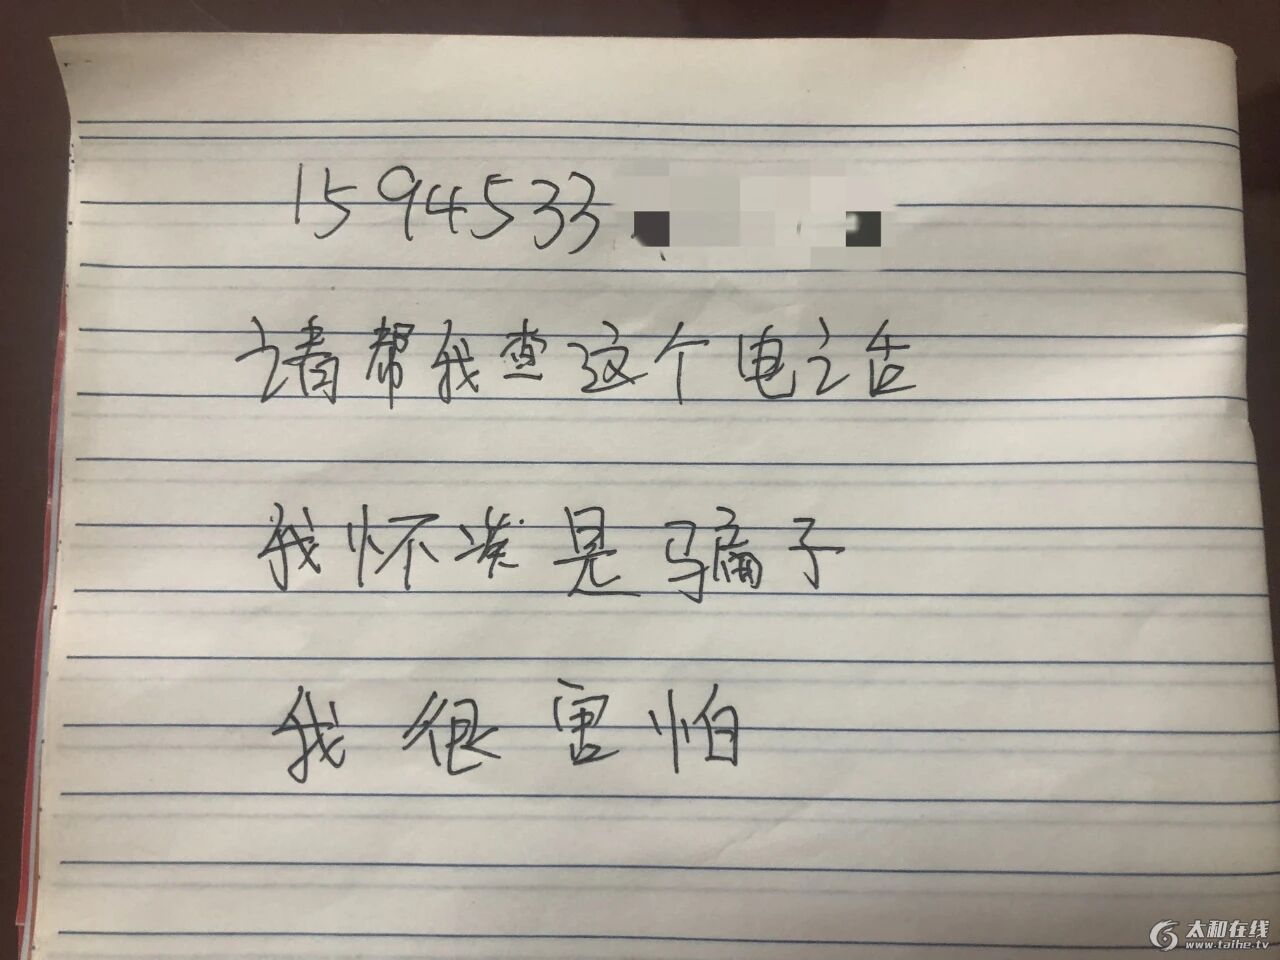 1594533
请帮我查这个电话
我怀疑是骗子
我很害怕
太和在线
www.taihe.tv